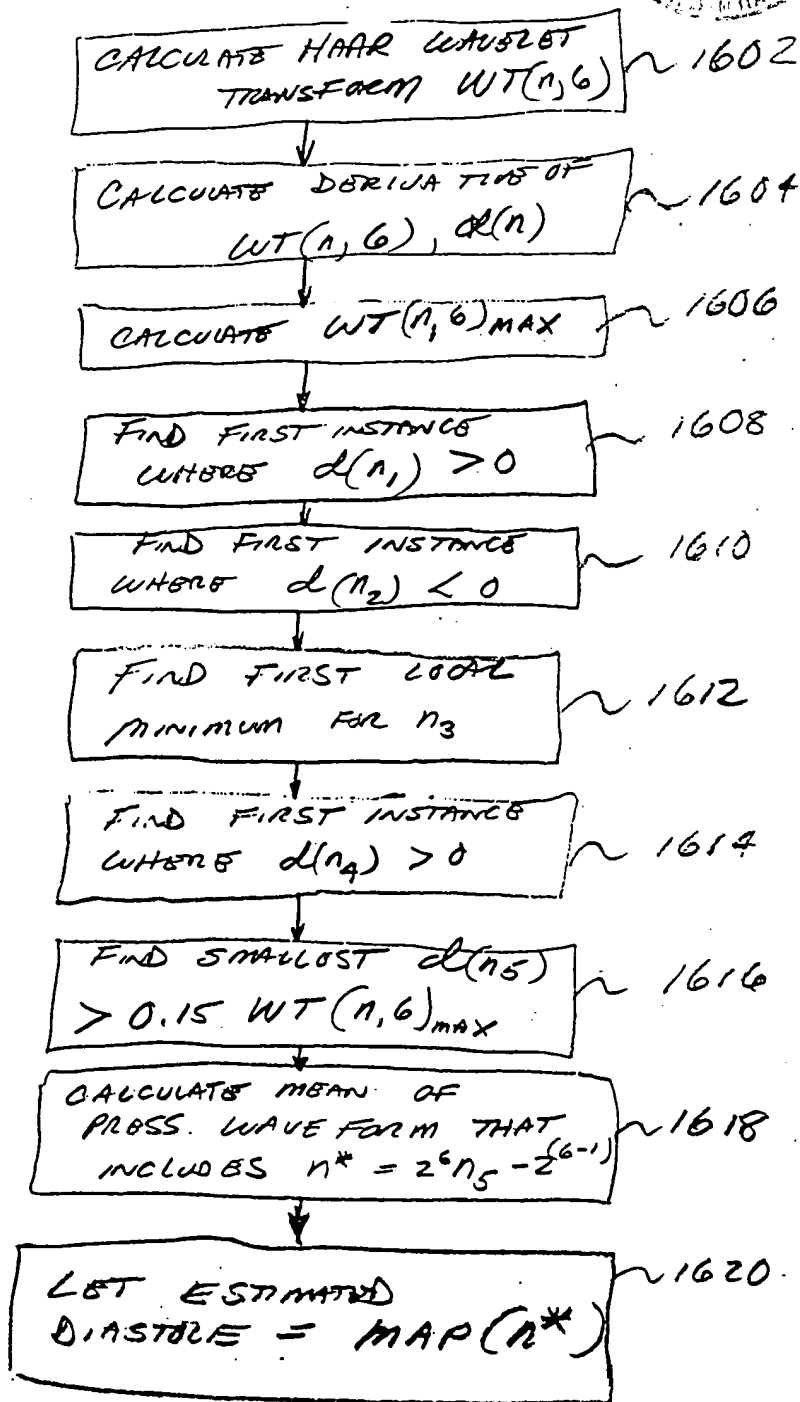 CALCULATE HAAR WAVELET
TRANSFORM WT(n,6)
1602
CALCULATE DERIVATIVE OF
WT(n,6), d(n)
1604
CALCULATE WT(n,6)MAX
1606
FIND FIRST INSTANCE
WHERE d(n₁) > 0
1608
FIND FIRST INSTANCE
WHERE d(n₂) < 0
1610
FIND FIRST LOCAL
MINIMUM FOR n₃
1612
FIND FIRST INSTANCE
WHERE d(n₄) > 0
1614
FIND SMALLEST d(n₅)
> 0.15 WT(n,6)MAX
1616
CALCULATE MEAN OF
PRESS. WAVEFORM THAT
INCLUDES n* = 2⁶n₅ - 2⁽⁶⁻¹⁾
1618
LET ESTIMATED
DIASTOLE = MAP(n*)
1620